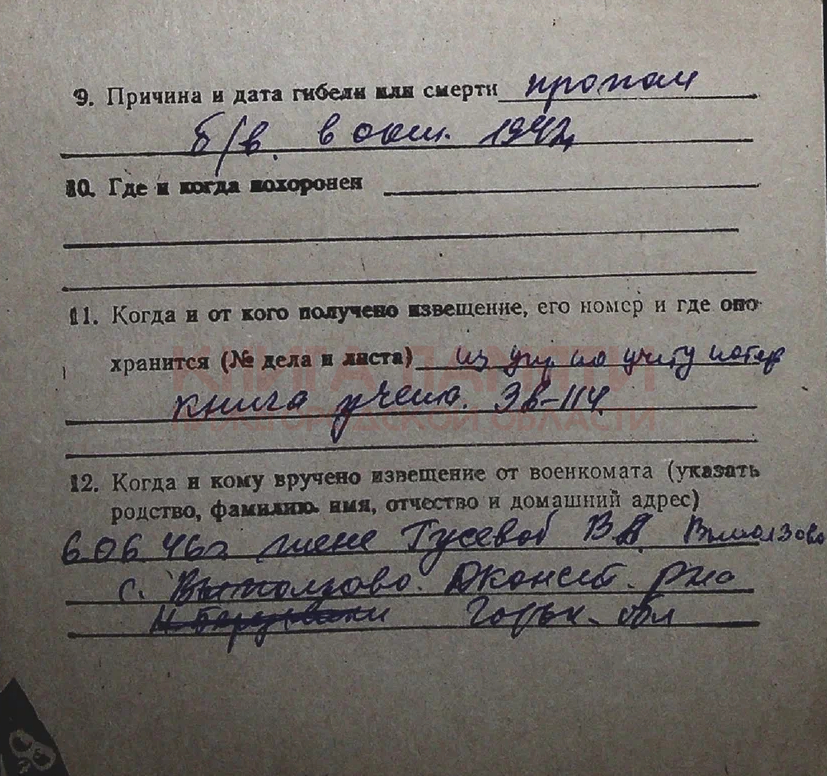 9. Причина и дата гибели или смерти пропал
б/в. в окт. 1942
10. Где и когда похоронен
11. Когда и от кого получено извещение, его номер и где оно
хранится (№ дела и листа) из упр по учету потер
КНИГА ПАМЯТИ
книга учета. Эв-114
НИЖЕГОРОДСКОЙ ОБЛАСТИ
12. Когда и кому вручено извещение от военкомата (указать
родство, фамилию. имя, отчество и домашний адрес)
6 06 46г жене Гусевой В
с. Выползово.
Горьк. обл